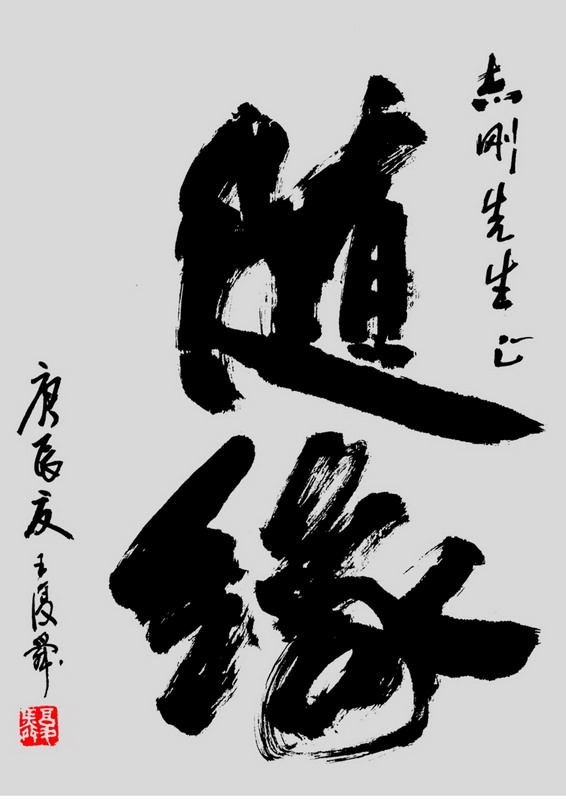 志刚先生正
随缘
庚辰夏王